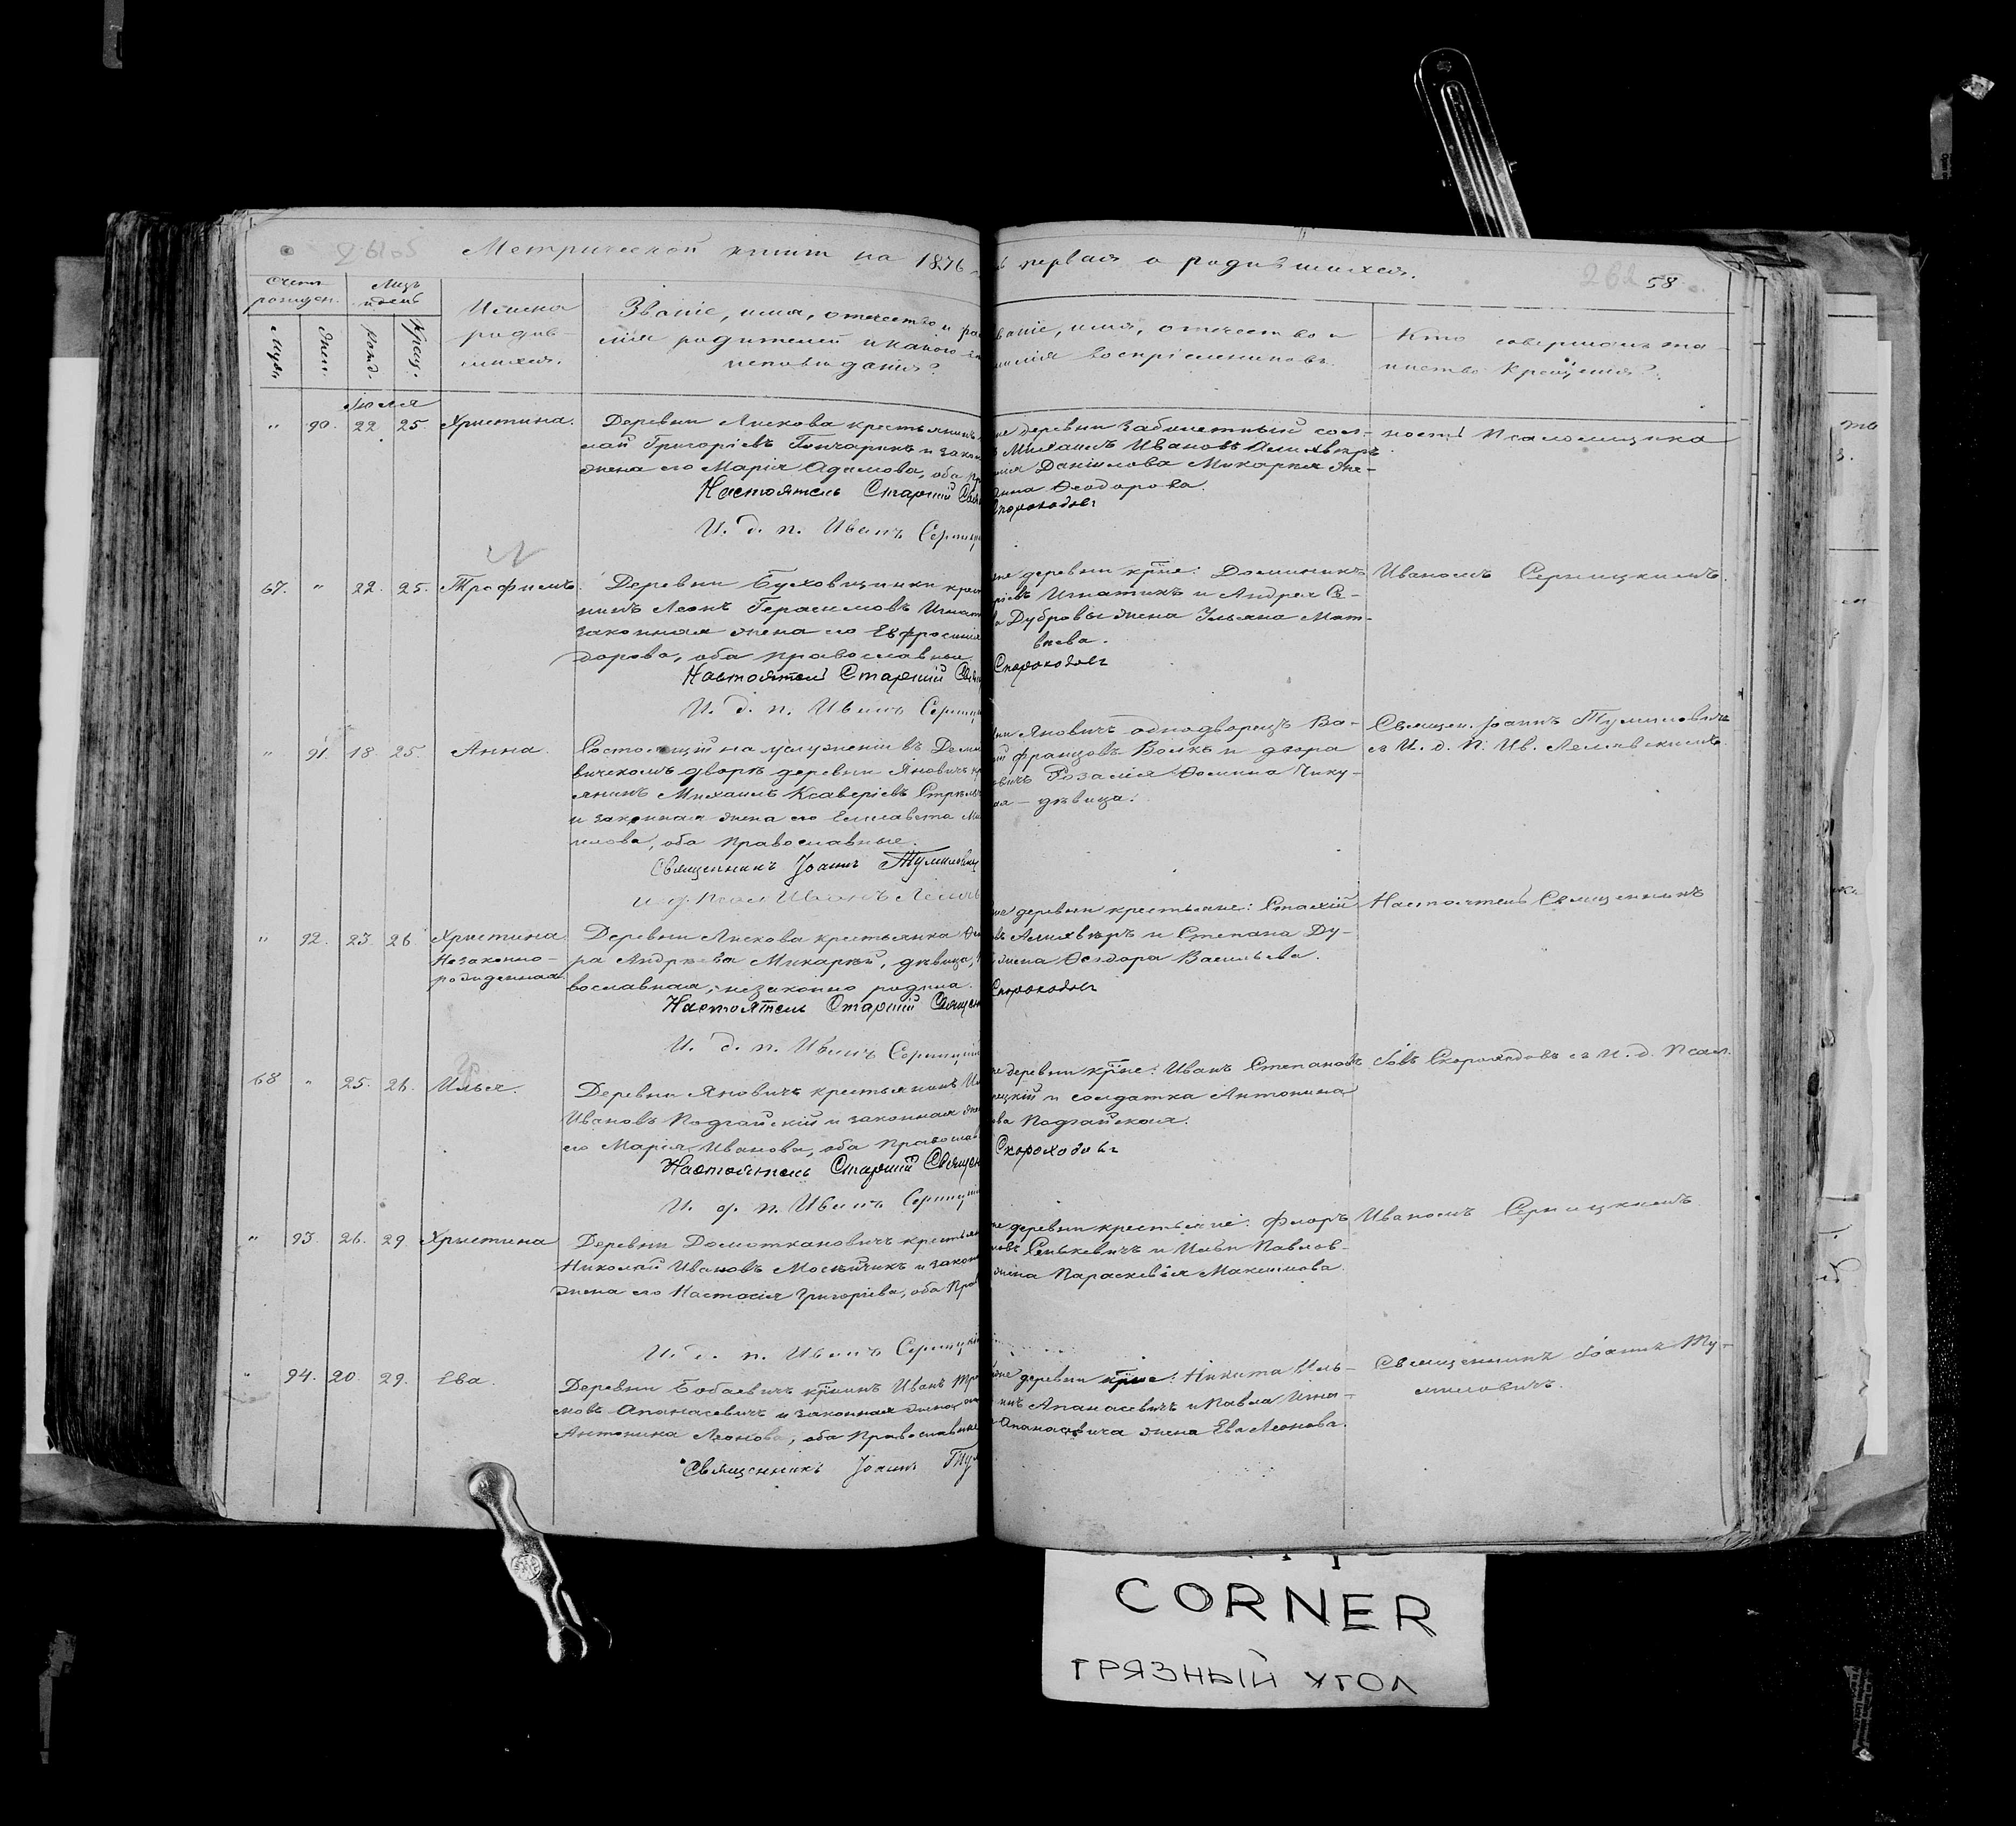 Метрической книги на 1876
ь первая о родившихся.
262 58.
Счетъ рожден.
Мѣс. и день
Имена родив-
шихся.
Званіе, имя, отчество и фа
милія родителей и какого
исповѣданія?
ваніе, имя, отчество и
милія воспріемниковъ.
Кто совершалъ та-
инство крещенія?
Муж.
Жен.
Рожд.
Крещ.
Іюля
" 90. 22 25. Христина.
Деревни Лискова крестьянинъ
лай Григоріевъ Гончарикъ и закон
жена его Марія Адамова, оба пр
Настоятель Старшій Свя
И. д. п. Иванъ Серницк
же деревни забилетный сол-
Михаилъ Ивановъ Алихвиръ
Даніилова Микарѣя же-
Ѳеодорова.
Скороходовъ
ность Псаломщика
67. " 22. 25. Трофимъ.
Деревни Буховщинки крест
нинъ Леонъ Герасимовъ Игнат
законная жена его Евфросинія
дорова, оба православные
Настоятель Старшій Свя
И. д. п. Иванъ Серницк
же деревни кр-не: Доминикъ
ріевъ Игнатикъ и Андрея Се-
Дубровы жена Ульяна Мат-
вѣева.
Скороходовъ
Иваномъ Серницкимъ.
" 91. 18. 25. Анна.
Состоящій на услуженіи въ Дома
вичскомъ дворѣ деревни Яновичъ кр
янинъ Михаилъ Ксаверіевъ Стрѣль
и законная жена его Елисавета Ми
илова, оба православные.
Священникъ Іоаннъ Тумилович
и. д. Псал Иванъ Лемяв
Яновичъ однодворецъ Ва-
Францовъ Волкъ и двора
овичъ Розалія Ѳомина Чику-
ая - дѣвица.
Священ. Іоаннъ Тумиловичъ
съ И. д. П. Ив. Лемявскимъ.
" 92. 23. 26. Христина
Незаконно-
рожденная.
Деревни Лискова крестьянка Ѳео
ра Андреева Микарѣй, дѣвица,
вославная, незаконно родила.
Настоятель Старшій Священ
И. д. п. Иванъ Серницкій
же деревни крестьяне: Стахій
въ Алихвѣръ и Степана Ду-
жена Ѳеодора Васильева.
Скороходовъ
Настоятель Священникъ
68 " 25. 26. Илья.
Деревни Яновичъ крестьянинъ
Ивановъ Подгайскій и законная же
его Марія Иванова, оба православ
Настоятель Старшій Священ
И. д. п. Иванъ Серницкій
же деревни кр-не: Иванъ Степановъ
ецкій и солдатка Антонина
ова Подгайская.
Скороходовъ
Іовъ Скороходовъ съ И. д. Псал.
" 93. 26. 29 Христина
Деревни Домоткановичъ крестьян
Николай Ивановъ Мосѣйчикъ и закон
жена его Настасія Григоріева, оба прав
И. д. п. Иванъ Серницкій
же деревни крестьяне: Флоръ
новъ Сенькевичъ и Ильи Павлов-
жена Параскевія Максимова.
Иваномъ Серницкимъ.
" 94. 20. 29. Ева.
Деревни Бобаевичъ кр-нинъ Иванъ Тро
мовъ Апанасевичъ и законная жена его
Антонина Леонова, оба православные
Священникъ Іоаннъ Тум
же деревни кр-не: Никита Иль-
инъ Апанасевичъ и Павла Игна-
Апанасевича жена Ева Леонова.
Священникъ Іоаннъ Ту-
миловичъ.
CORNER
ГРЯЗНЫЙ УГОЛ